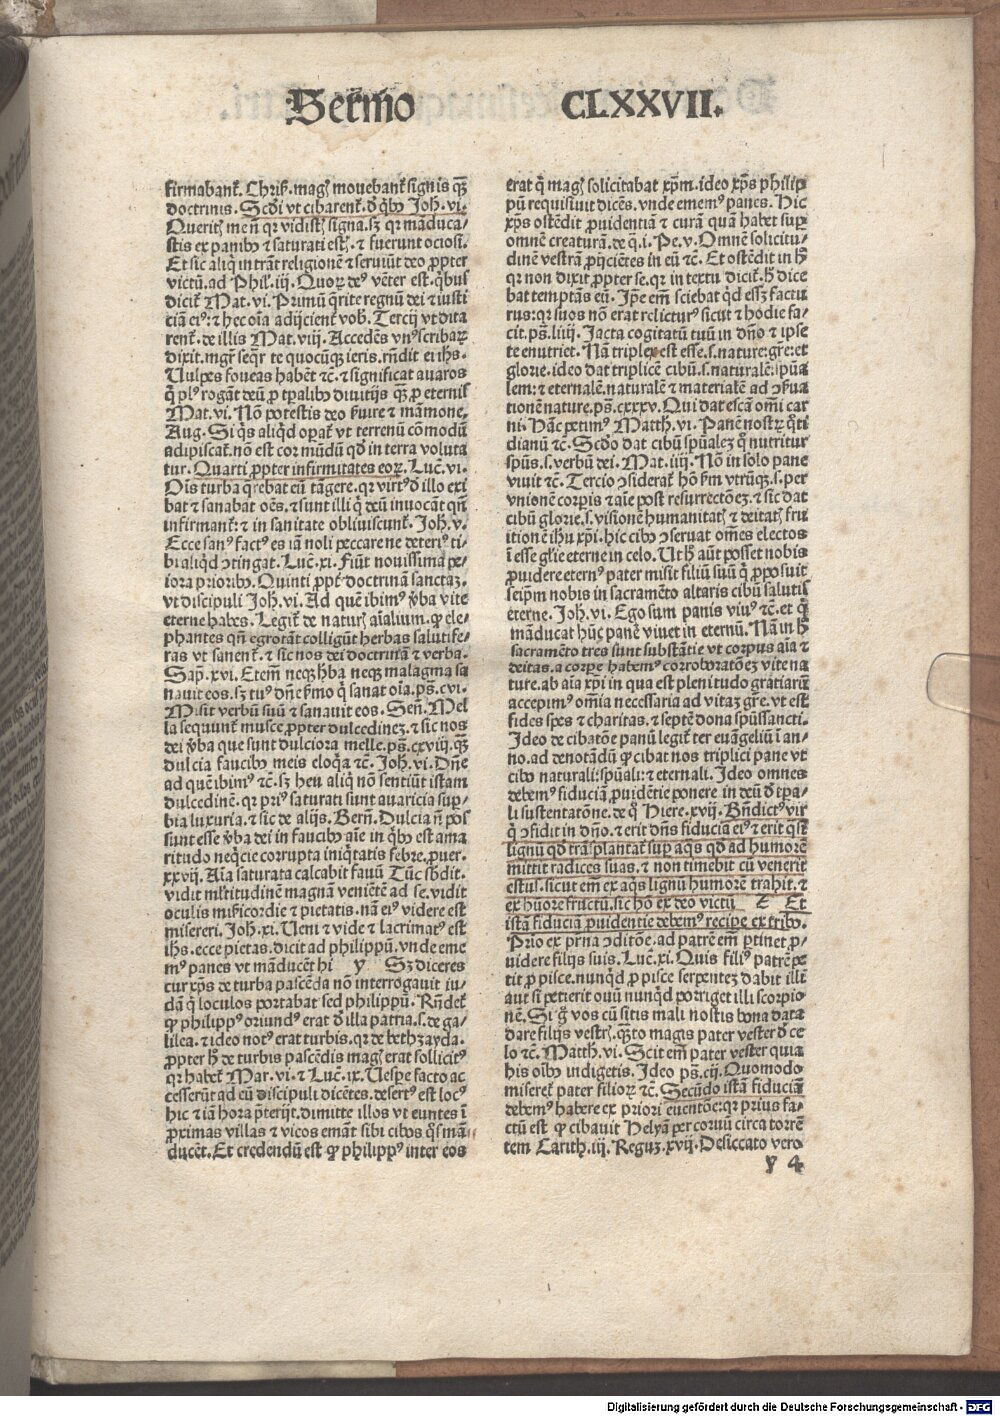 Sermo CLXXVII.
firmabant᷑. Chriſ. magꝭ mouebant᷑ ſignis qꝫ
doctrinis. Scd̓i vt cibarent᷑. d̓ qͥbꝰ Joh̓. vi.
Querit me n̄ qꝛ vidiſtꝭ ſigna. ſꝫ qꝛ māduca/
ſtis ex panibꝰ ⁊ ſaturati eſtꝭ. ⁊ fuerunt ocioſi.
Et ſic aliq̇ intrāt religionē ⁊ ſeruiūt deo ꝓpter
victū. ad Phil̓. iij. Quoꝝ deꝰ vēter eſt. qͥbus
dicit᷑ Mat. vi. Primū q̄rite regnū dei ⁊ iuſti
ciā eiꝰ: ⁊ hec oīa adijcient᷑ vob̓. Tercij vt dita
rent᷑. de illis Mat. viij. Accedēs vnꝰ ſcribaꝝ
dixit. mgr̄ ſeq̄r te quocūqꝫ ieris. rn̄dit ei ih̓s.
Uulpes foueas habēt ⁊c̄. ⁊ ſignificat auaros
q̇ plꝰ rogāt deū ꝓ tꝑalibꝰ diuitijs qꝫ ꝓ eternis
Mat. vi. Nō poteſtis deo ẜuire ⁊ māmone.
Aug. Si q̇s aliqͥd opat᷑ vt terrenū cōmodū
adipiſcat᷑. nō eſt cor mūdū qd̓ in terra voluta
tur. Quarti ꝓpter infirmitates eoꝝ. Luc̄. vi.
Oīs turba q̄rebat eū tāgere. qꝛ virtꝰ d̓ illo exi
bat ⁊ ſanabat oēs. ⁊ ſunt illi q̇ deū inuocāt qn̄
infirmant᷑: ⁊ in ſanitate obliuiſcunt᷑. Joh̓. v.
Ecce ſanꝰ factꝰ es iā noli peccare ne deteriꝰ ti/
bi aliqͥd ↄtingat. Luc̄. xi. Fiūt nouiſſima pe/
iora prioribꝰ. Quinti ꝓpt᷑ doctrinā ſanctaꝫ.
vt diſcipuli Joh̓. vi. Ad quē ibimꝰ v̓ba vite
eterne habes. Legit᷑ de naturꝭ aīalium. ꝙ ele/
phantes qn̄ egrotāt colligūt herbas ſalutife/
ras vt ſanent᷑. ⁊ ſic nos dei doctrinā ⁊ verba.
Sap̄. xvi. Etem̄ neqꝫ h̓ba neqꝫ malagma ſa
nauit eos. ſꝫ tuꝰ dn̄e ẜmo q̇ ſanat oīa. pͣs. cvi.
Miſit verbū ſuū ⁊ ſanauit eos. Sen̄. Mel
la ſequunt᷑ muſce ꝓpter dulcedinēꝫ. ⁊ ſic nos
dei v̓ba que ſunt dulciora melle. pͣs. cxviij. qꝫ
dulcia faucibꝰ meis eloq̇a ⁊c̄. Joh̓. vi. Dn̄e
ad quē ibimꝰ ⁊c̄. ſꝫ heu aliq̇ nō ſentiūt iſtam
dulcedinē. qꝛ priꝰ ſaturati ſunt auaricia ſuꝑ/
bia luxuria. ⁊ ſic de alijs. Bern̄. Dulcia n̄ poſ
ſunt eſſe v̓ba dei in faucibꝰ aīe in qͥbꝰ eſt ama
ritudo neqͥcie corrupta iniqͥtatis febre. ꝓuer.
xxvij. Aīa ſaturata calcabit fauū Tūc ſb̓dit.
vidit ml̓titudinē magnā veniētē ad ſe. vidit
oculis miẜicordie ⁊ pietatis. nā eiꝰ videre eſt
miſereri. Joh̓. xi. Ueni ⁊ vide ⁊ lacrimatꝰ eſt
ih̓s. ecce pietas. dicit ad philippū. vnde eme
mꝰ panes vt māducēt hi y Sꝫ diceres
cur xp̄s de turba paſcēda nō interrogauit iu/
dā q̇ loculos portabat ſed philippū. Rn̄det᷑
ꝙ philippꝰ oriundꝰ erat d̓ illa patria. ſ. de ga/
lilea. ⁊ ideo notꝰ erat turbis. qꝛ de bethzayda.
ꝓpter h̓ de turbis paſcēdis magꝭ erat ſollicitꝰ
qꝛ habet᷑ Mar. vi. ⁊ Luc̄. ix. Ueſpe facto ac
ceſſerūt ad eū diſcipuli dicētes. deſertꝰ eſt locꝰ
hic ⁊ iā hora p̄terijt. dimitte illos vt euntes ī
ꝓximas villas ⁊ vicos emāt ſibi cibos q̇s mā
ducēt. Et credendū eſt ꝙ philippꝰ inter eos
erat q̇ magꝭ ſolicitabat xp̄m. ideo xp̄s philip
pū requiſiuit dicēs. vnde ememꝰ panes. Hic
xp̄s oſtēdit ꝓuidentiā ⁊ curā quā habet ſuꝑ
omnē creaturā. de q̇. i. Pe. v. Omnē ſolicitu/
dinē veſtrā ꝓijciētes in eū ⁊c̄. Et oſtēdit in h̓
qꝛ non dixit ꝓpter ſe. qꝛ in textu dicit᷑. h̓ dice
bat temptās eū. Ip̄e em̄ ſciebat qͥd eſſꝫ factu
rus: qꝛ ſuos nō erat relicturꝰ ſicut ⁊ hodie fa/
cit. pͣs. liiij. Jacta cogitatū tuū in dn̄o ⁊ ipſe
te enutriet. Nā triplex eſt eſſe. ſ. nature: gr̄e: et
glorie. ideo dat triplicē cibū. ſ. naturalē: ſpūa
lem: ⁊ eternalē. naturalē ⁊ materialē ad ↄẜua
tionē nature. pͣs. cxxxv. Qui dat eſcā om̄i car
ni. Hāc petimꝰ Matth. vi. Panē noſtꝝ q̇ti
dianū ⁊c̄. Scd̓o dat cibū ſpūalēꝫ q̇ nutritur
ſpūs. ſ. verbū dei. Mat. iiij. Nō in ſolo pane
viuit ⁊c̄. Tercio ↄſiderat᷑ hō ẜm vtrūqꝫ. ſ. per
vnionē corꝑis ⁊ aīe poſt reſurrectōeꝫ. ⁊ ſic dat
cibū glorie. ſ. viſionē humanitatꝭ ⁊ deitatꝭ fru
itionē ih̓u xp̄i. hic cibꝰ ↄſeruat om̄es electos
ī eſſe gl̓ie eterne in celo. Ut h̓ aūt poſſet nobis
ꝓuidere eternꝰ pater miſit filiū ſuū q̇ ꝓpoſuit
ſeip̄m nobis in ſacramēto altaris cibū ſalutis
eterne. Joh̓. vi. Ego ſum panis viuꝰ ⁊c̄. et q̇
māducat hūc panē viuet in eternū. Nā in h̓
ſacramēto tres ſunt ſubſtātie vt corpus aīa ⁊
deitas. a corꝑe habemꝰ corroboratōeꝫ vite na
ture. ab aīa xp̄i in qua eſt plenitudo gratiarū
accepimꝰ omīa neceſſaria ad vitaꝫ gr̄e. vt eſt
fides ſpes ⁊ charitas. ⁊ ſeptē dona ſpūſſancti.
Ideo de cibatōe panū legit᷑ ter euāgeliū ī an/
no. ad denotādū ꝙ cibat nos triplici pane vt
cibꝰ naturali: ſpūali: ⁊ eternali. Ideo omnes
debemꝰ fiduciā ꝓuidētie ponere in deū d̓ tꝑa/
li ſuſtentatōne. de q̇ Hiere. xvij. Bn̄dictꝰ vir
q̇ ↄfidit in dn̄o. ⁊ erit dn̄s fiducia eiꝰ ⁊ erit qͣſi
lignū qd̓ trāſplantat᷑ ſuꝑ aq̄s qd̓ ad humorē
mittit radices ſuas. ⁊ non timebit cū venerit
eſtuſ. ſicut em̄ ex aq̄s lignū humorē trahit. ⁊
ex hūore fructū. ſic hō ex deo victū Z Et
iſtā fiduciā ꝓuidentie debemꝰ reciꝑe ex tribꝰ.
Prīo ex pr̄na ↄditōe. ad patrē em̄ ꝑtinet ꝓ/
videre filijs ſuis. Luc̄. xi. Quis filiꝰ patrē pe
tit ꝓ piſce. nunqͥd ꝓ piſce ſerpentēꝫ dabit illi:
aut ſi petierit ouū nunqͥd porriget illi ſcorpio
nē. Si g̓ vos cū ſitis mali noſtis bona data
dare filijs veſtrꝭ. qͣꝫto magis pater veſter d̓ ce
lo ⁊c̄. Matth. vi. Scit em̄ pater veſter quia
his oībꝰ indigetis. Ideo pͣs. cij. Quomodo
miſeret᷑ pater filioꝝ ⁊c̄. Secūdo iſtā fiduciā
debemꝰ habere ex priori euentōe: qꝛ prius fa/
ctū eſt ꝙ cibauit Helyā per coruū circa torrē
tem Carith. iij. Reguꝫ. xvij. Deſiccato vero
y 4
Digitalisierung gefördert durch die Deutsche Forschungsgemeinschaft - DFG